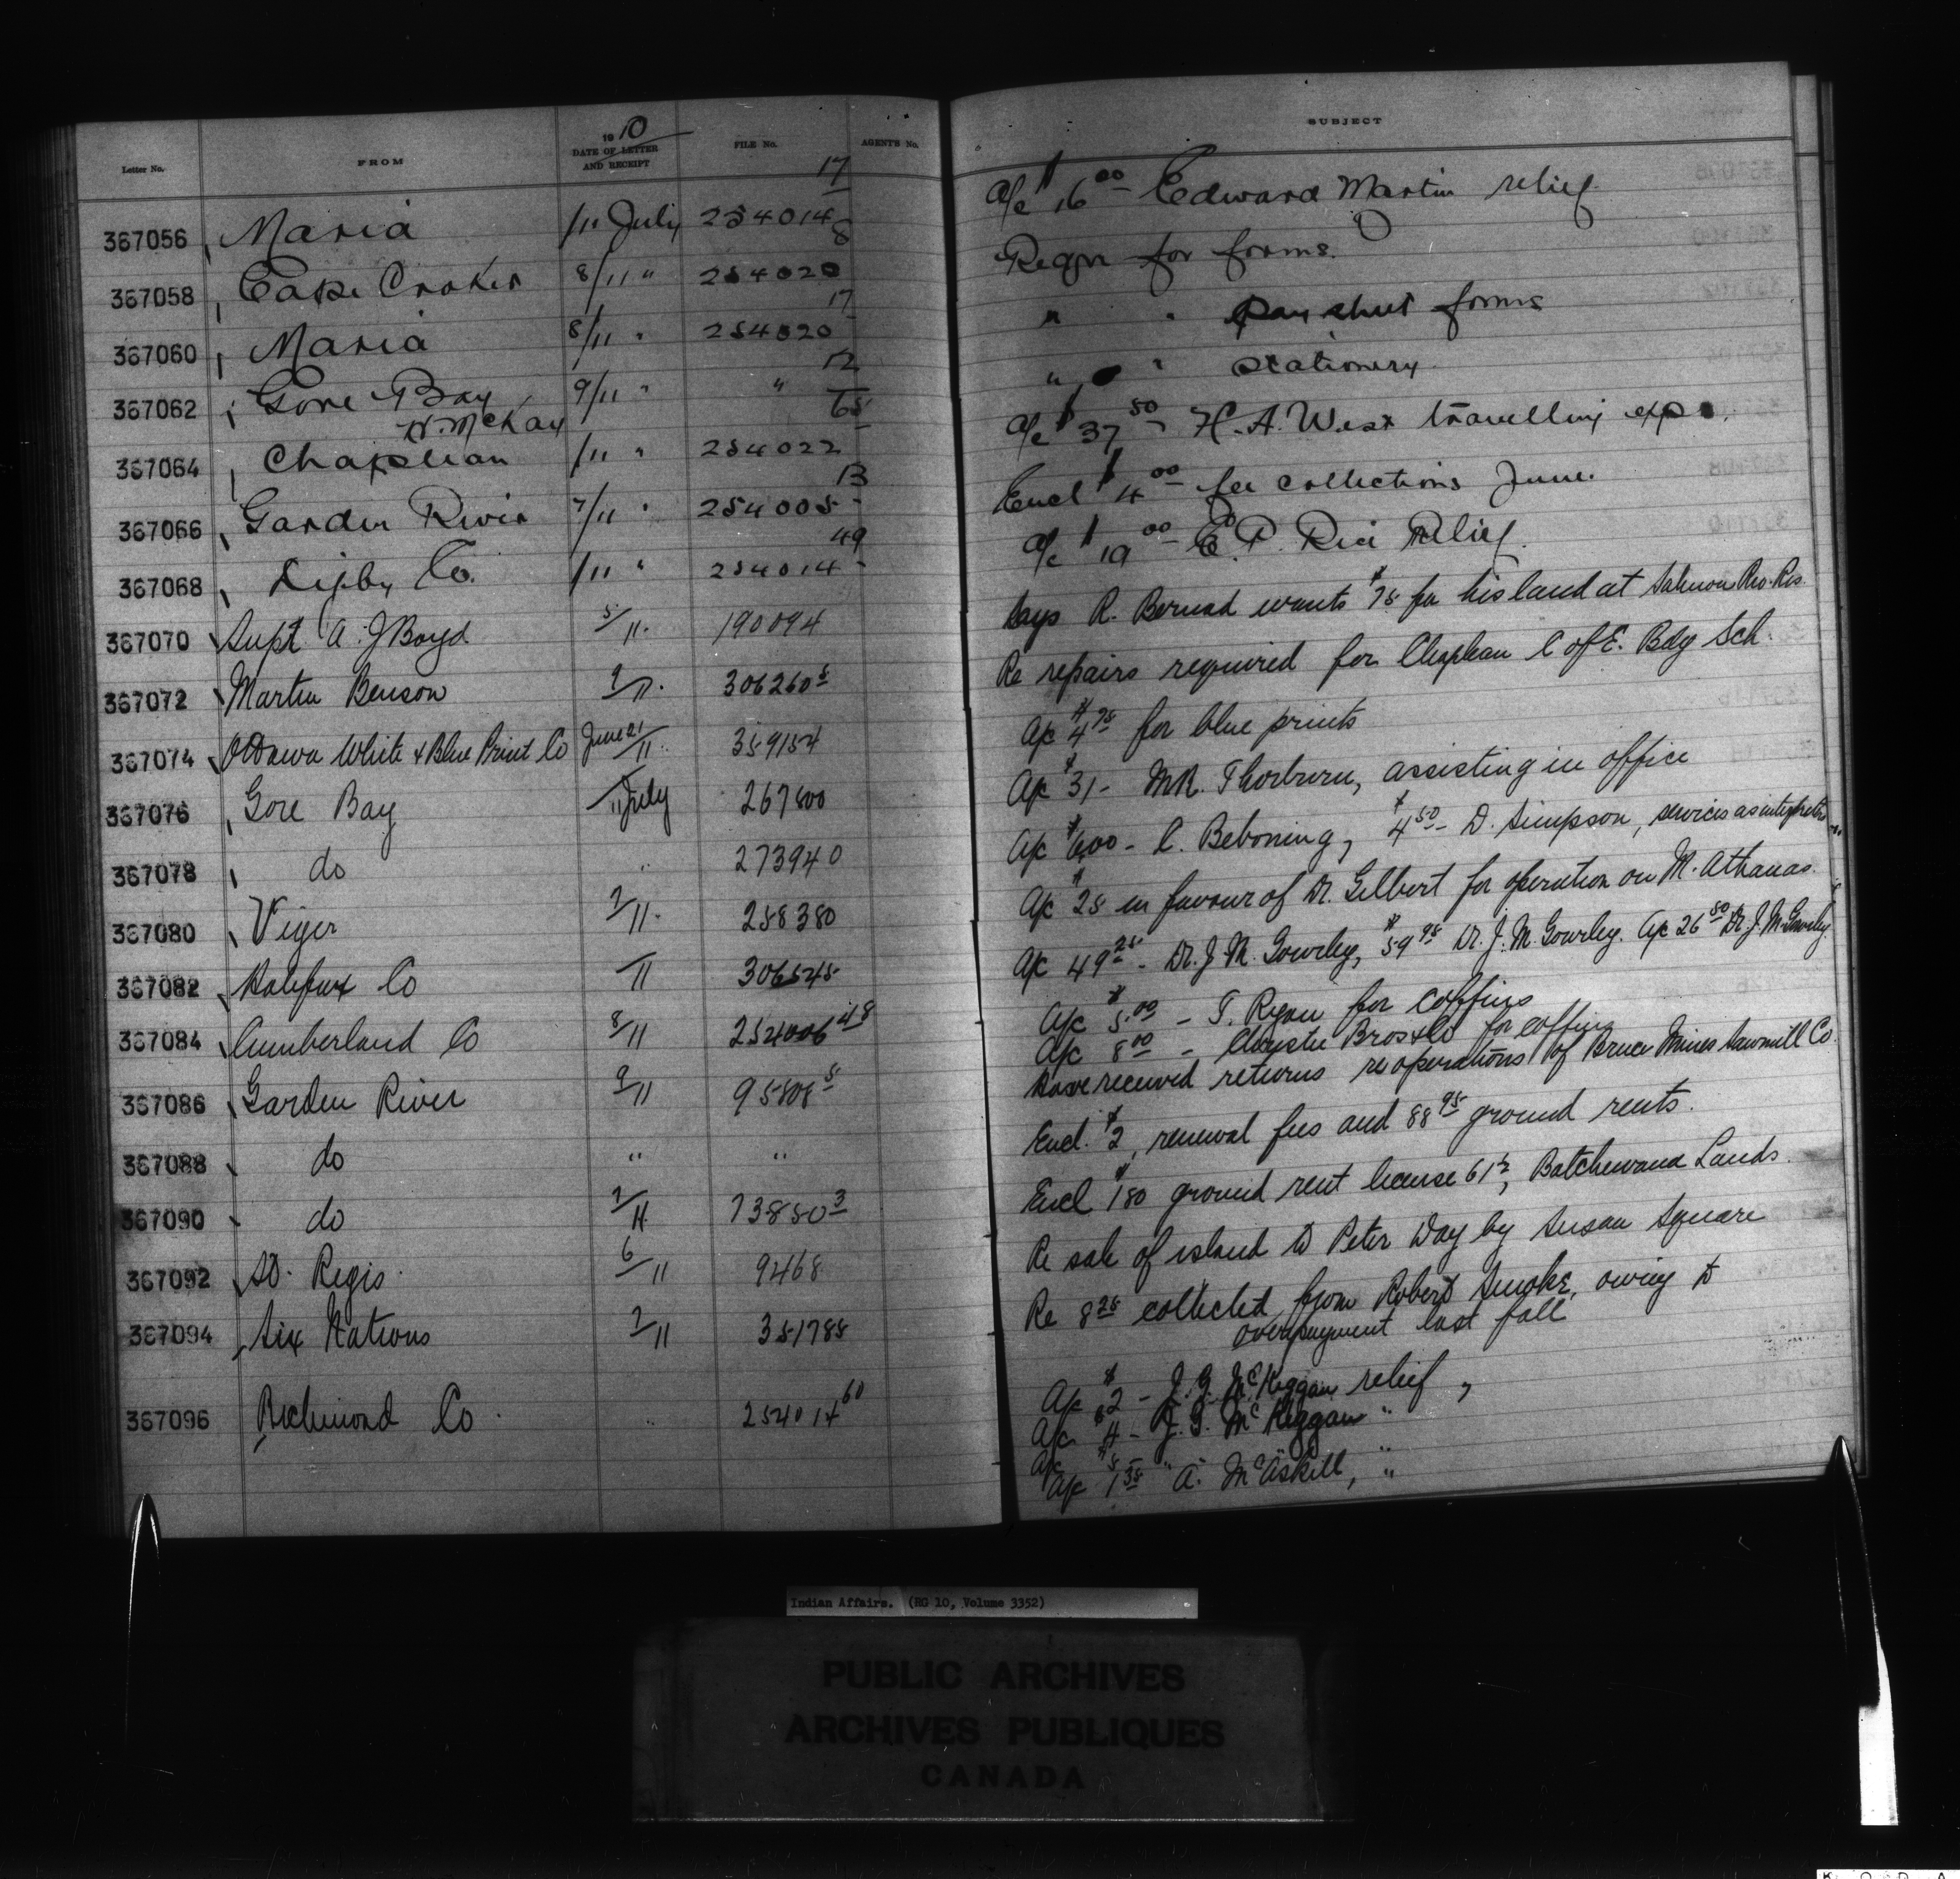 1910
Letter No. FROM DATE OF LETTER AND RECEIPT FILE No. AGENT'S No. SUBJECT
367056 Maria /11 July 254014 17 a/c $16 00 Edward Martin relief
367058 Cape Croker 8/11 " 254020 8 Reqn for forms.
367060 Maria 8/11 " 254020 17 " " Pay sheet forms
367062 Gore Bay 9/11 " " 12 " " Stationery
H. McKay
367064 Chapleau /11 " 254022 65 a/c $37 50 H. A. West travelling exps.
367066 Garden River 7/11 " 254005 13 Encl $4 00 fee collections June.
367068 Digby Co. /11 " 254014 49 a/c $19 00 E. P. Rice Relief.
367070 Supt A. J Boyd 5/11. 190094 Says R. Bernad wants $75 for his land at Salmon Riv. Res.
367072 Martin Benson 9/11. 306260 5 Re repairs required for Chapleau C of E. Bdg Sch.
367074 Ottawa White & Blue Print Co June 21/11. 359154 A/c $4 75 for blue prints
367076 Gore Bay /11 July 267800 A/c $31 - Mr. Thorburn, assisting in office
367078 do " 273940 A/c $6.00 - C. Beboning, $4 50 - D. Simpson, services as interpreters
367080 Viger 7/11. 258380 A/c $25 in favour of Dr. Gilbert for operation on M. Athanas.
367082 Halifax Co /11 306545 A/c 49 25 - Dr. J. M. Gourley, $59 95 Dr. J. M. Gourley. A/c 26 50 Dr. J. M. Gourley.
367084 Cumberland Co 8/11 254006 48 A/c $5.00 - T. Ryan for coffins
A/c 8 00 - Chrystie Bros & Co for coffins
367086 Garden River 9/11 95808 5 Have received returns re operations of Bruce Mines Sawmill Co.
367088 do " " Encl. $2, renewal fees and 88 95 ground rents.
367090 do 7/11. 73850 3 Encl $180 ground rent license 61 1/2, Batchewana Lands.
367092 St. Regis. 6/11 9468 Re sale of island to Peter Day by Susan Square
367094 Six Nations 7/11 351785 Re 8 25 collected from Robert Smoke, owing to
overpayment last fall
367096 Richmond Co. " 254014 60 A/c $2 - J. G. McKeggan relief,
A/c $4 - J. G. McKeggan "
A/c $5 - "
A/c 1 35 " A. McAskill, "
Indian Affairs. (RG 10, Volume 3352)
PUBLIC ARCHIVES
ARCHIVES PUBLIQUES
CANADA